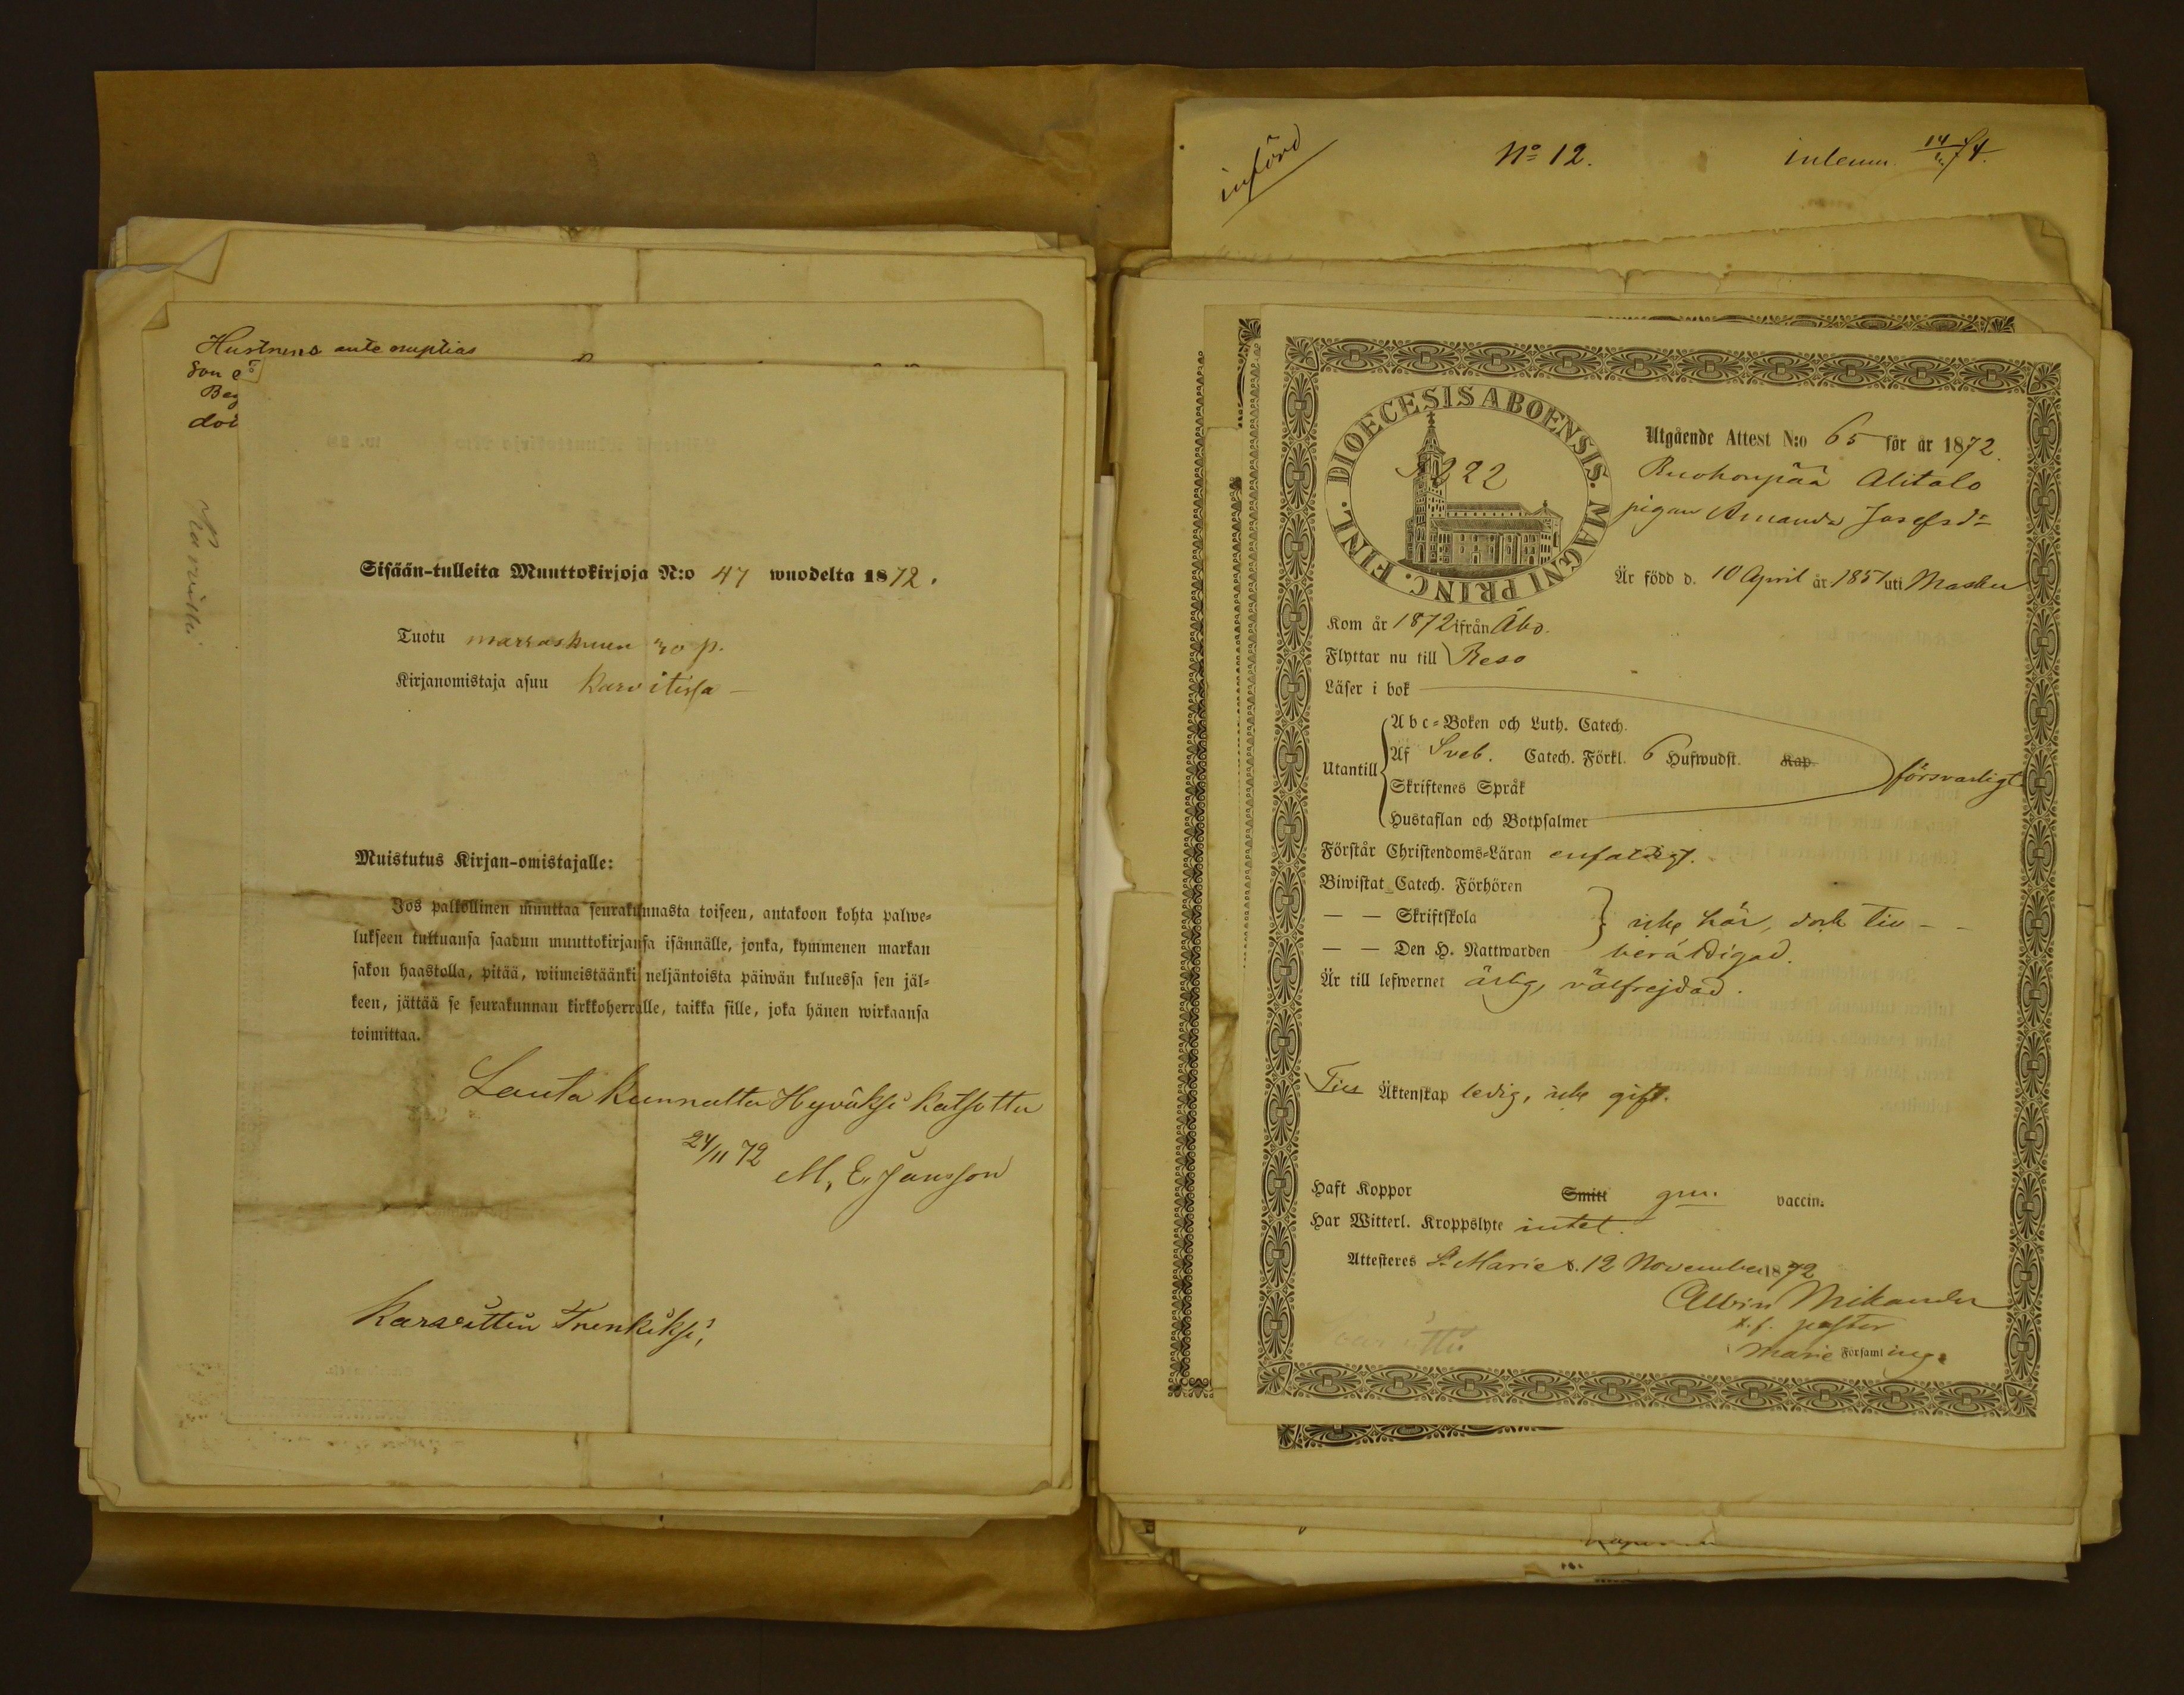 Hustruns ante nuptias
son e
Beg
dot
Karvitti
Sisään-tulleita Muuttokirjoja N:o 47 wuodelta 1872.
Tuotu marraskuun 30 p.
Kirjanomistaja asuu Karvitissa
Muistutus Kirjan-omistajalle:
Jos palkollinen muuttaa seurakunnasta toiseen, antakoon kohta palwe=
lukseen tultuansa saadun muuttokirjansa isännälle, jonka, kymmenen markan
sakon haastolla, pitää, wiimeistäänki neljäntoista päiwän kuluessa sen jäl=
keen, jättää se seurakunnan kirkkoherralle, taikka sille, joka hänen wirkaansa
toimittaa.
Lautakunnalta Hyväksi katsottu
24/11 72
M. E. Jansson
Karvittin Trenkiksi,
införd
No 12.
inlemn. 14/74.
DIOECESIS ABOENSIS. MAGNI PRINC. FINL.
222
Utgående Attest N:o 65 för år 1872.
Ruohonpää Alitalo
pigan Amanda Josefsdr
Är född d. 10 April år 1851 uti Masku
Kom år 1872 ifrån Åbo.
Flyttar nu till Reso
Läser i bok
Utantill
Abc=Boken och Luth. Catech.
Af Sveb. Catech. Förkl. 6 Hufwudst. Kap.
Skriftenes Språk
Hustaflan och Botpsalmer
försvarligt
Förstår Christendoms=Läran enfaldigt.
Biwistat Catech. Förhören
— — Skriftskola
— — Den H. Nattwarden
icke här, dock till -
beräktigad.
Är till lefwernet ärlig, välfrejdad.
Till Äktenskap ledig, icke gift.
Haft Koppor Smitt gm. vaccin.
Har Witterl. Kroppslyte intet.
Attesteres St Marie d. 12 November 1872
Albin Mikander
t. f. pastor
Marie Församling.